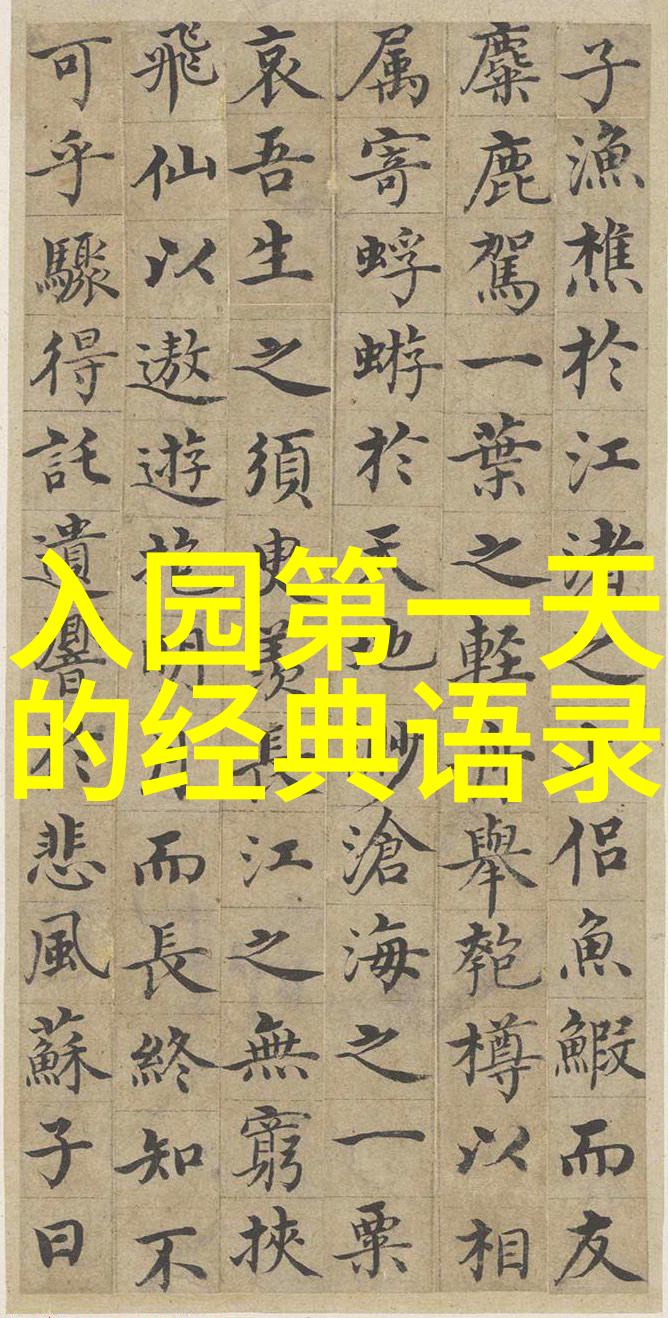 入园第一天
的经典语录
子漁樵於江渚之上侶魚鰕而友
麋鹿駕一葉之輕舟舉匏樽以相
属寄蜉蝣於天地渺滄海之一粟
哀吾生之須臾羨長江之無窮挾
飛仙以遨遊抱明月而長終知不
可乎驟得託遺響於悲風蘇子曰